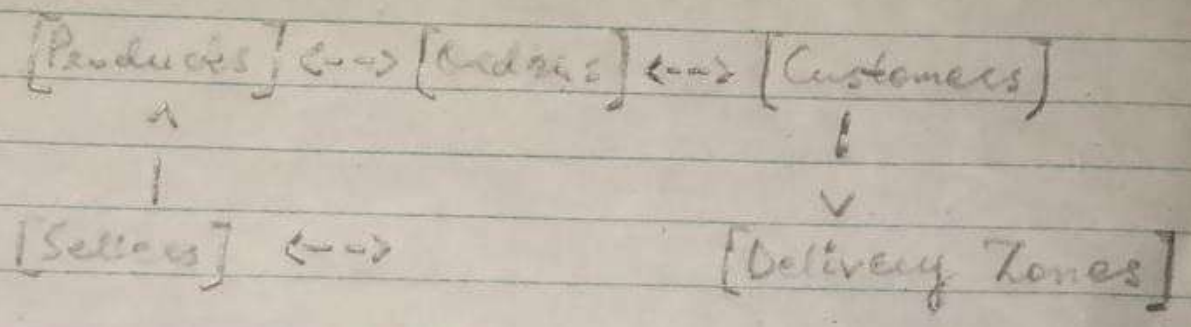 [Products] <--> [Orders] <--> [Customers]
^ |
| v
[Sellers] <--> [Delivery Zones]